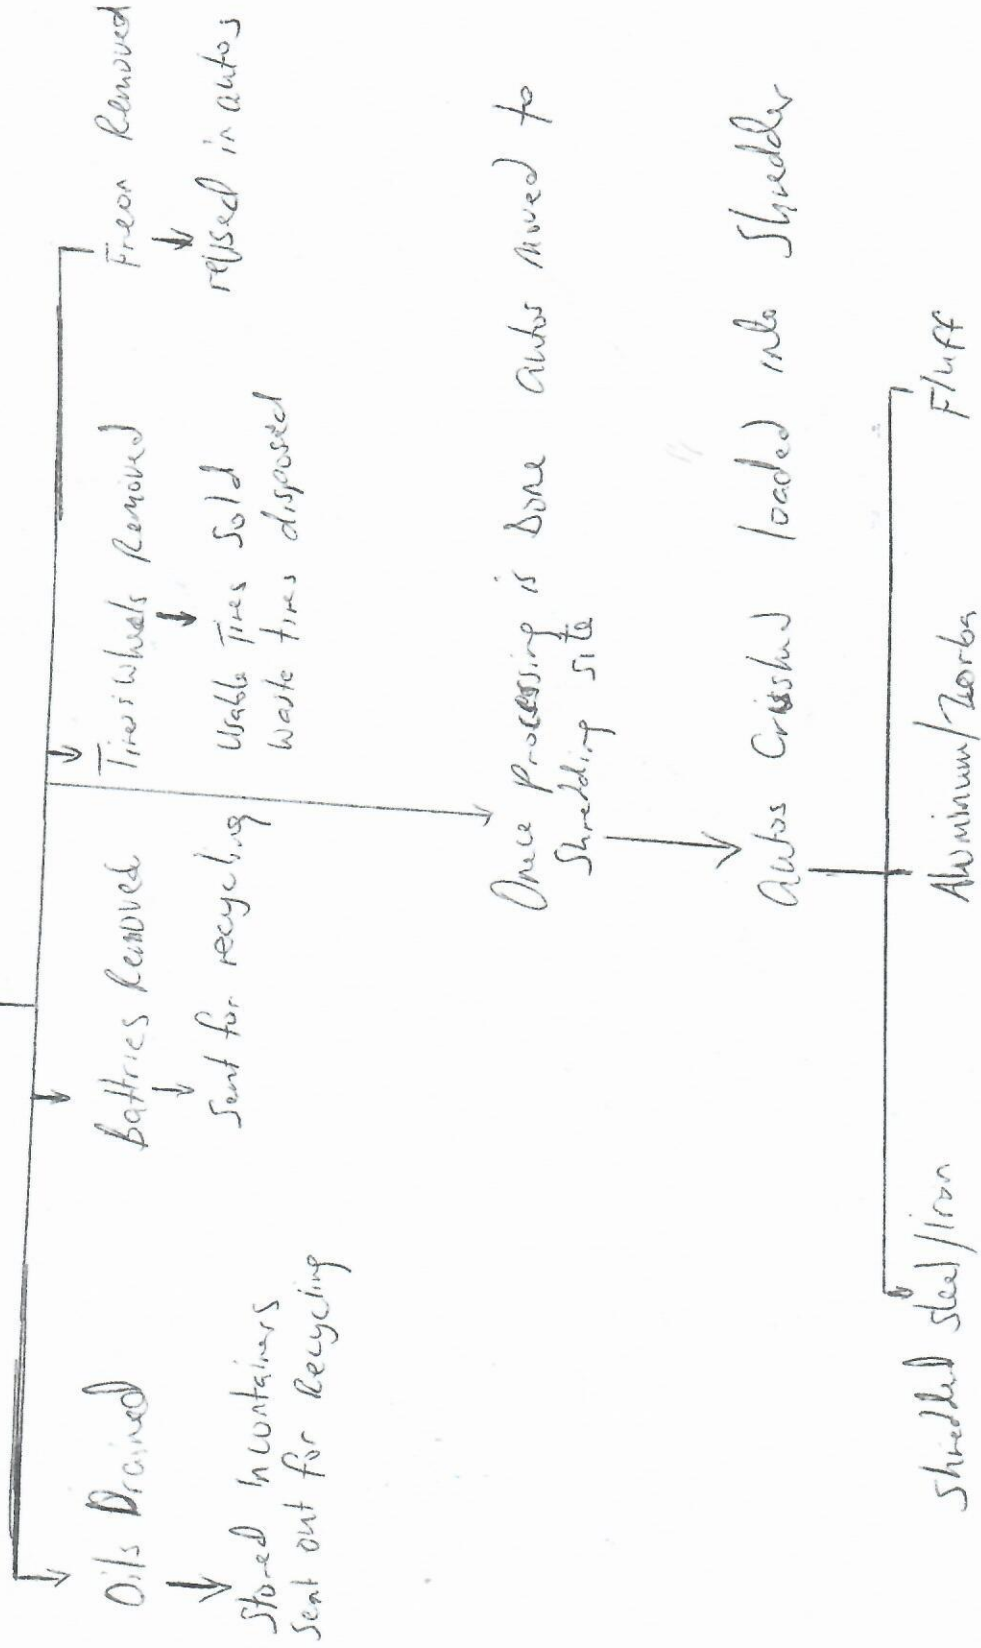 Oils Drained
Stored In containers
Sent out for Recycling
Battries Removed
Sent for recycling
Tires & Wheels Removed
Usable Tires Sold
Waste tires disposed
Freon Removed
reused in autos
Once Processing is Done autos moved to
Shredding site
autos Crushed loaded into Shredder
Shredded steel/iron
Aluminum/Zorba
Fluff